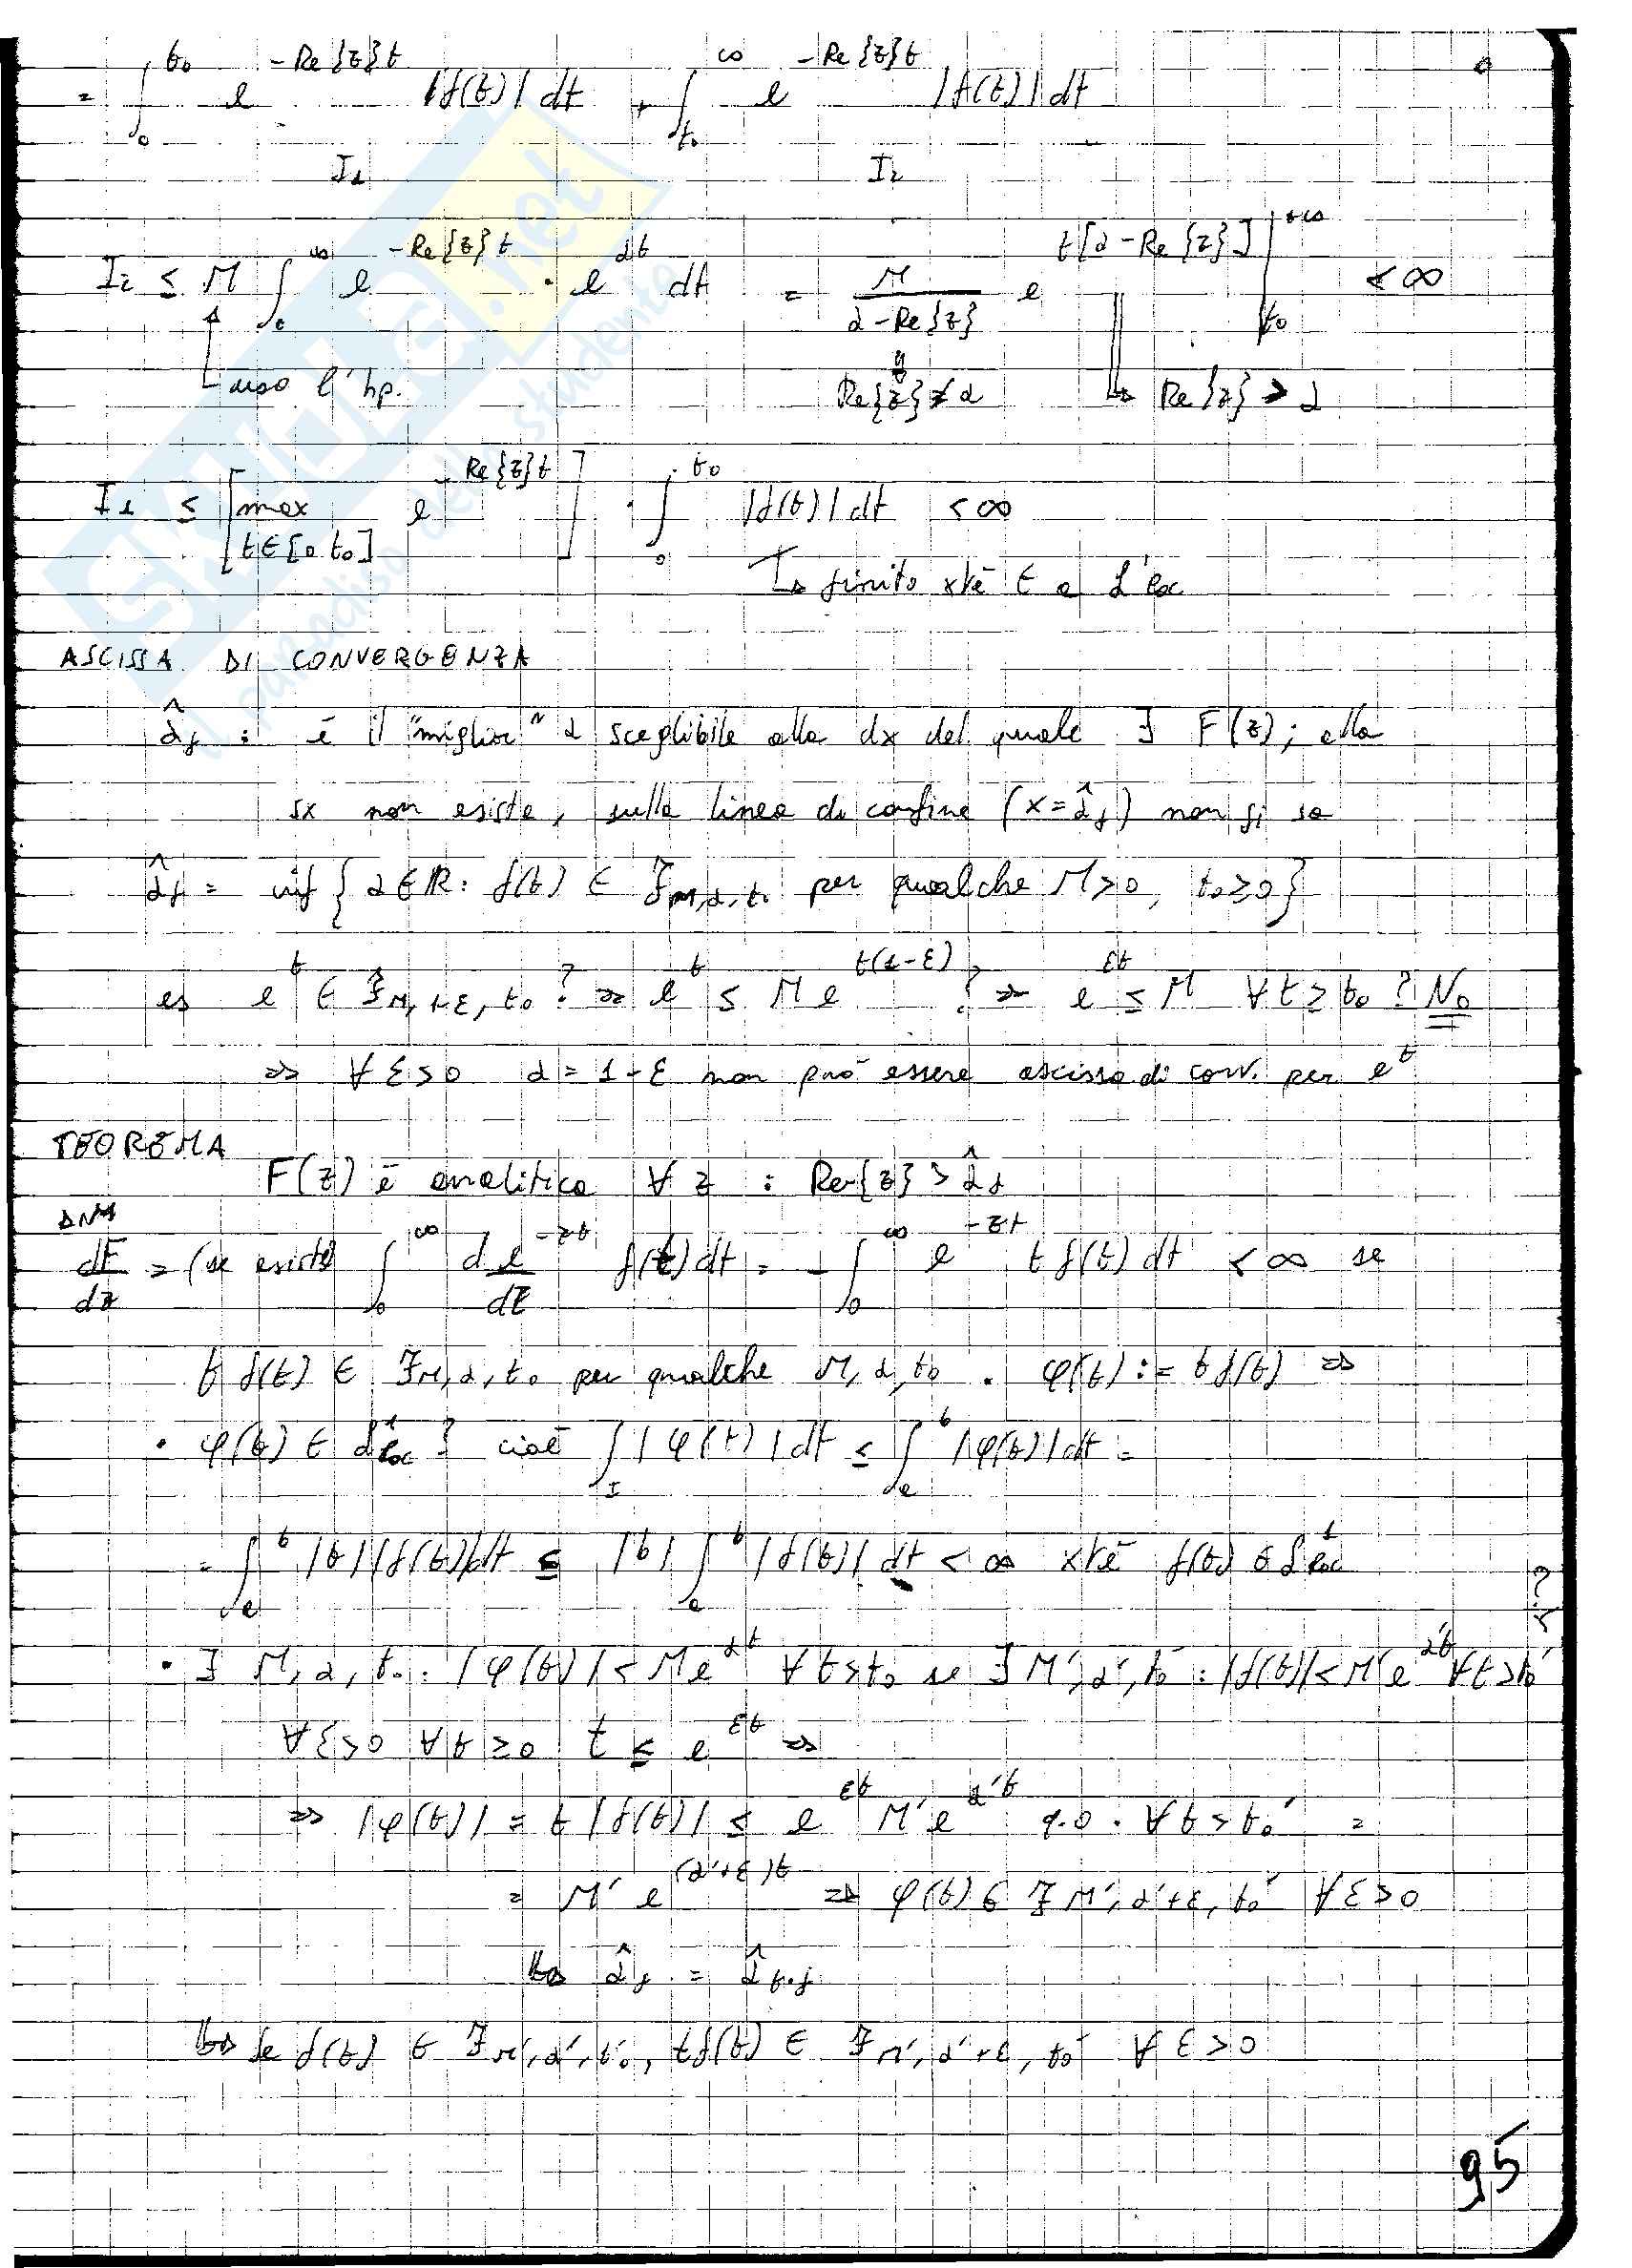 = ∫₀^{t₀} e^{-Re{z}t} |f(t)| dt + ∫_{t₀}^∞ e^{-Re{z}t} |f(t)| dt
I₁ I₂
I₂ ≤ M ∫₀^∞ e^{-Re{z}t} · e^{αt} dt = M/(α-Re{z}) e^{t[α-Re{z}]} |_{t₀}^{+∞} < ∞
uso l'hp. Re{z} ≠ α ↳ Re{z} > α
I₁ ≤ [max_{t∈[0 t₀]} e^{-Re{z}t}] · ∫₀^{t₀} |f(t)| dt < ∞
↳ finito xkè ∈ a L¹loc
ASCISSA DI CONVERGENZA
α̂_f : è il "miglior" α sceglibile alla dx del quale ∃ F(z); alla
sx non esiste, sulla linea di confine (x=α̂_f) non si sa
α̂_f = inf {α∈ℝ: f(t) ∈ ℱ_{M,α,t₀} per qualche M>0, t₀≥0}
es e^t ∈ ℱ_{M,1-ε,t₀} ? ⇒ e^t ≤ M e^{t(1-ε)} ? ⇒ e^{εt} ≤ M ∀t≥t₀ ? No
⇒ ∀ε>0 α=1-ε non può essere ascissa di conv. per e^t
TEOREMA
F(z) è analitica ∀z : Re{z} > α̂_f
DIM
dF/dz = (se esiste) ∫₀^∞ d e^{-zt}/dz f(t) dt = -∫₀^∞ e^{-zt} t f(t) dt < ∞ se
t f(t) ∈ ℱ_{M,α,t₀} per qualche M,α,t₀ . φ(t) := t f(t) ⇒
• φ(t) ∈ L¹loc ? cioè ∫_I |φ(t)| dt ≤ ∫_a^b |φ(t)| dt =
= ∫_a^b |t||f(t)| dt ≤ |b| ∫_a^b |f(t)| dt < ∞ xkè f(t) ∈ L¹loc
• ∃ M,α,t₀ : |φ(t)| < M e^{αt} ∀t>t₀ se ∃ M',α',t₀' : |f(t)| < M' e^{α't} ∀t>t₀'
∀ε>0 ∀t≥0 t ≤ e^{εt} ⇒
⇒ |φ(t)| = t |f(t)| ≤ e^{εt} M' e^{α't} q.o. ∀t>t₀' =
= M' e^{(α'+ε)t} ⇒ φ(t) ∈ ℱ_{M',α'+ε,t₀'} ∀ε>0
↳ α̂_f = α̂_{t·f}
↳ se f(t) ∈ ℱ_{M',α',t'₀}, tf(t) ∈ ℱ_{M',α'+ε,t₀'} ∀ε>0
95